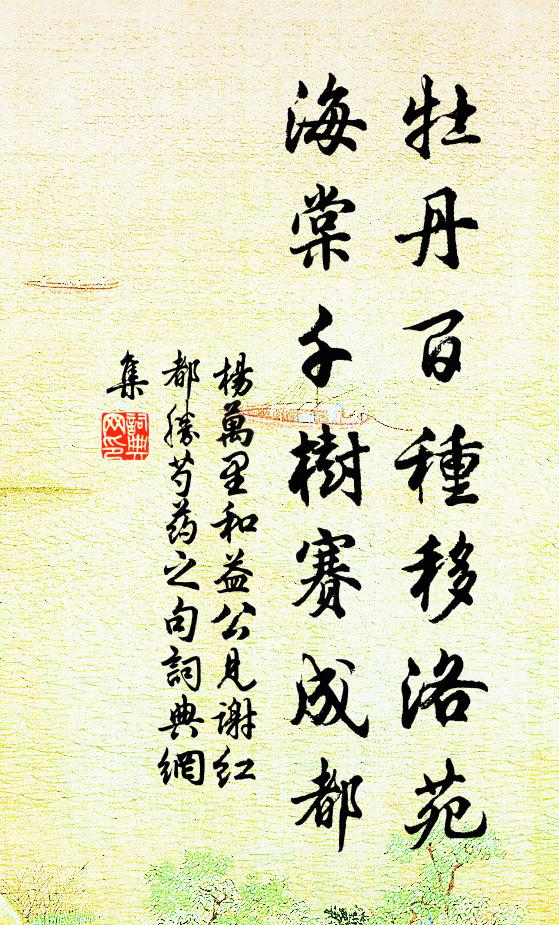 牡丹百種移洛苑
海棠千樹賽成都
楊萬里和益公見謝紅
都勝芍药之句詞典網
集
詞典
网印